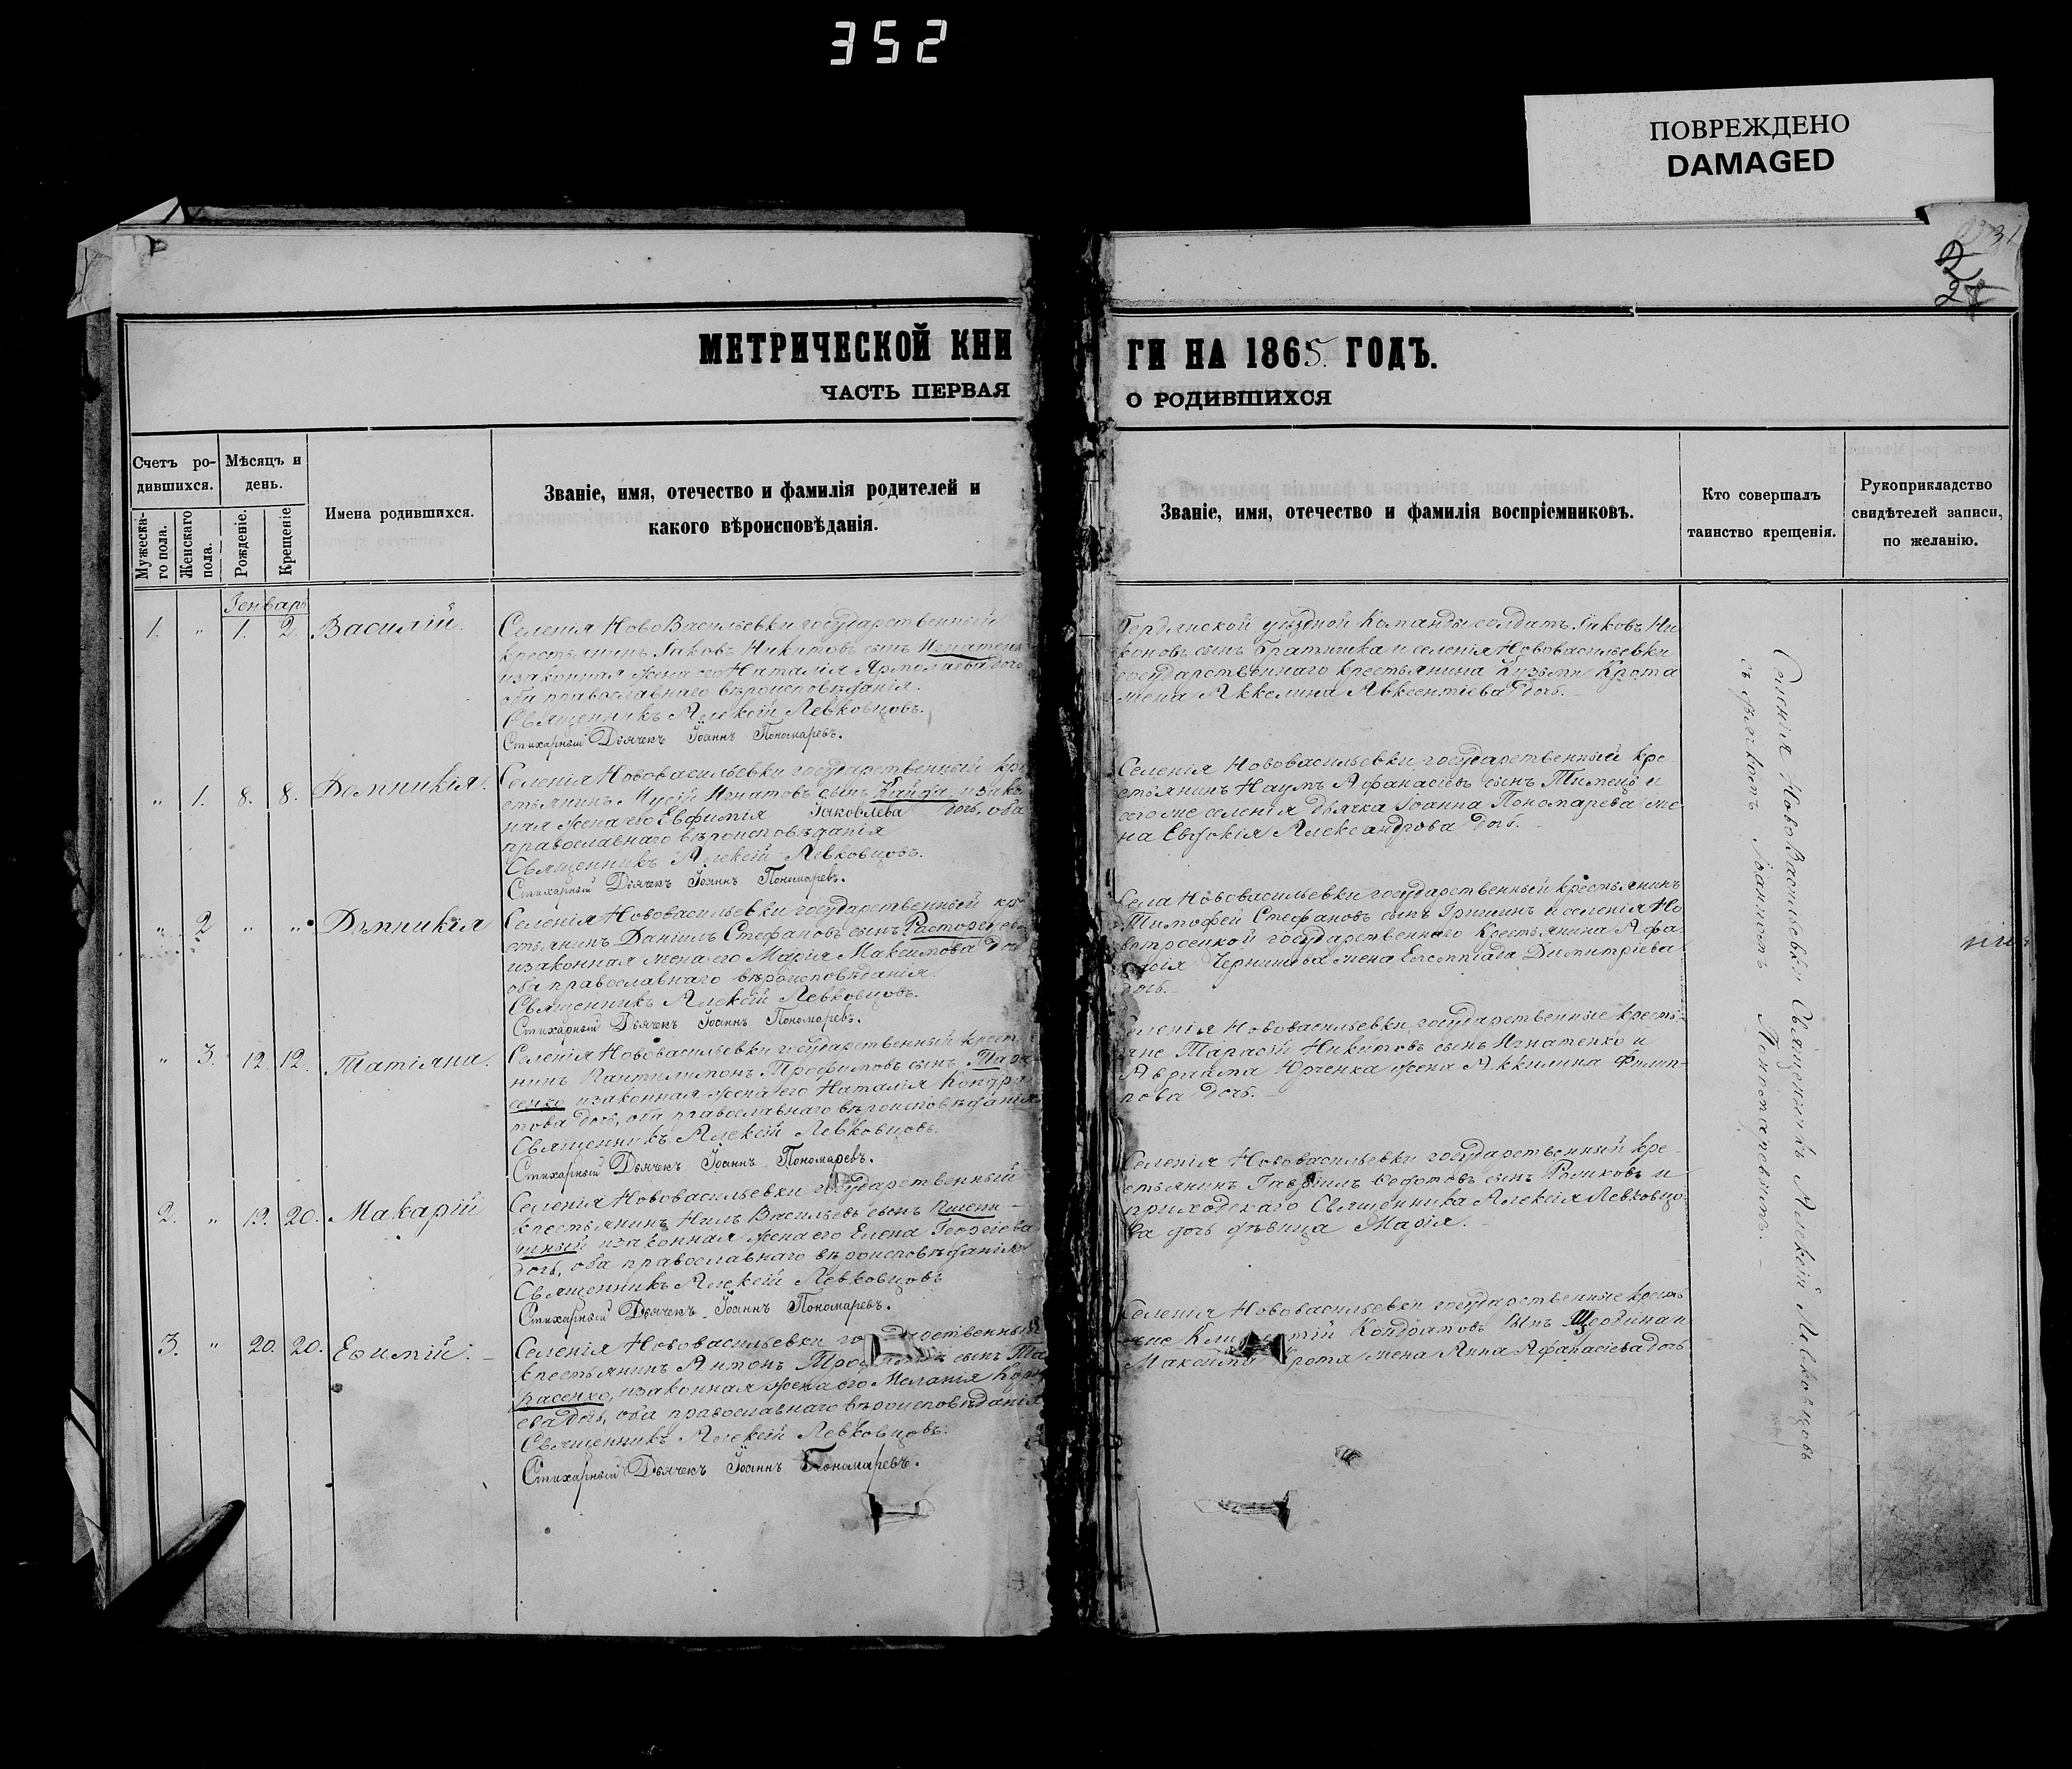 352
ПОВРЕЖДЕНО
DAMAGED
31
2
2
МЕТРИЧЕСКОЙ КНИ
ГИ НА 1865. ГОДЪ.
ЧАСТЬ ПЕРВАЯ
О РОДИВШИХСЯ
Счетъ ро-
дившихся.
Мѣсяцъ и
день.
Мужеска-
го пола.
Женскаго
пола.
Рожденіе.
Крещеніе
Имена родившихся.
Званіе, имя, отечество и фамилія родителей и
какого вѣроисповѣданія.
Званіе, имя, отечество и фамилія воспріемниковъ.
Кто совершалъ
таинство крещенія.
Рукоприкладство
свидѣтелей записи,
по желанію.
Генварь
1. " 1. 2. Василій.
Селенія НовоВасильевки государственный
крестьянинъ Іаковъ Никитовъ сынъ Игнатенк
изаконная жена его Наталія Артолаева дочь
оба православнаго вѣроисповѣданія.
Священникъ Алексій Левковцовъ.
Стихарный Дьячекъ Іоаннъ Пономаревъ.
Бердянской уѣздной Команды солдатъ Іаковъ Ни
коновъ сынъ и селенія Нововасильевки
государственнаго крестьянина Кузьмы Крота
жена Аккелина Авксентіева дочь.
" 1. 8. 8. Домникія.
Селенія Нововасильевки государственный кре
стьянинъ Мусій Игнатовъ сынъ Кайда, изако
ная жена его Евфимія Іаковлева дочь, оба
православнаго вѣроисповѣданія
Священникъ Алексій Левковцовъ.
Стихарный Дьячекъ Іоаннъ Пономаревъ.
Селенія Нововасильевки государственный кре
стьянинъ Наумъ Афанасіевъ сынъ и
тогоже селенія дьячка Іоанна Пономарева же
на Евдокія Александрова дочь.
" 2 " " Домникія
Селенія Нововасильевки государственный кре
стьянинъ Даніилъ Стефановъ сынъ
изаконная жена его Марія Максимова дочь
оба православнаго вѣроисповѣданія.
Священникъ Алексій Левковцовъ.
Стихарный Дьячекъ Іоаннъ Пономаревъ.
Села Нововасильевки государственный крестьянинъ
Тимофей Стефановъ сынъ Гришинъ и селенія Но
вотроецкой государственнаго крестьянина Афа
насія Чернишева жена Димитріева
дочь.
" 3. 12. 12. Татіяна.
Селенія Нововасильевки государственный крестья
нинъ Пантилимонъ Трофимовъ сынъ Тара
сенко, изаконная жена его Наталія Кондра
това дочь, оба православнаго вѣроисповѣданія
Священникъ Алексій Левковцовъ.
Стихарный Дьячекъ Іоаннъ Пономаревъ.
Селенія Нововасильевки государственные кресть
яне Тарасій Никитовъ сынъ Игнатенко и
Авраама Юрченка жена Аккилина Филип-
пова дочь.
2. " 19. 20. Макарій
Селенія Нововасильевки государственный
крестьянинъ Нилъ Васильевъ сынъ Пшени-
чный изаконная жена его Елена Георгіева
дочь, оба православнаго вѣроисповѣданія
Священникъ Алексій Левковцовъ
Стихарный Дьячекъ Іоаннъ Пономаревъ.
Селенія Нововасильевки государственный кре
стьянинъ Гавріилъ Федотовъ сынъ и
приходскаго Священника Алексія Левковцо
ва дочь дѣвица Марія.
3. " 20. 20. Евфимій.
Селенія Нововасильевки государственный
крестьянинъ Антонъ сынъ Та
расенко, изаконная жена его Меланія Корн
ева дочь, оба православнаго вѣроисповѣданія
Священникъ Алексій Левковцовъ.
Стихарный Дьячекъ Іоаннъ Пономаревъ.
Селенія Нововасильевки государственные кресть
яне Кондратовъ сынъ Щербина и
Максима Крота жена Анна Афанасіева дочь
Селенія НовоВасильевки Священникъ Алексій Левковцовъ
съ дьячкомъ Іоанномъ Пономаревымъ.